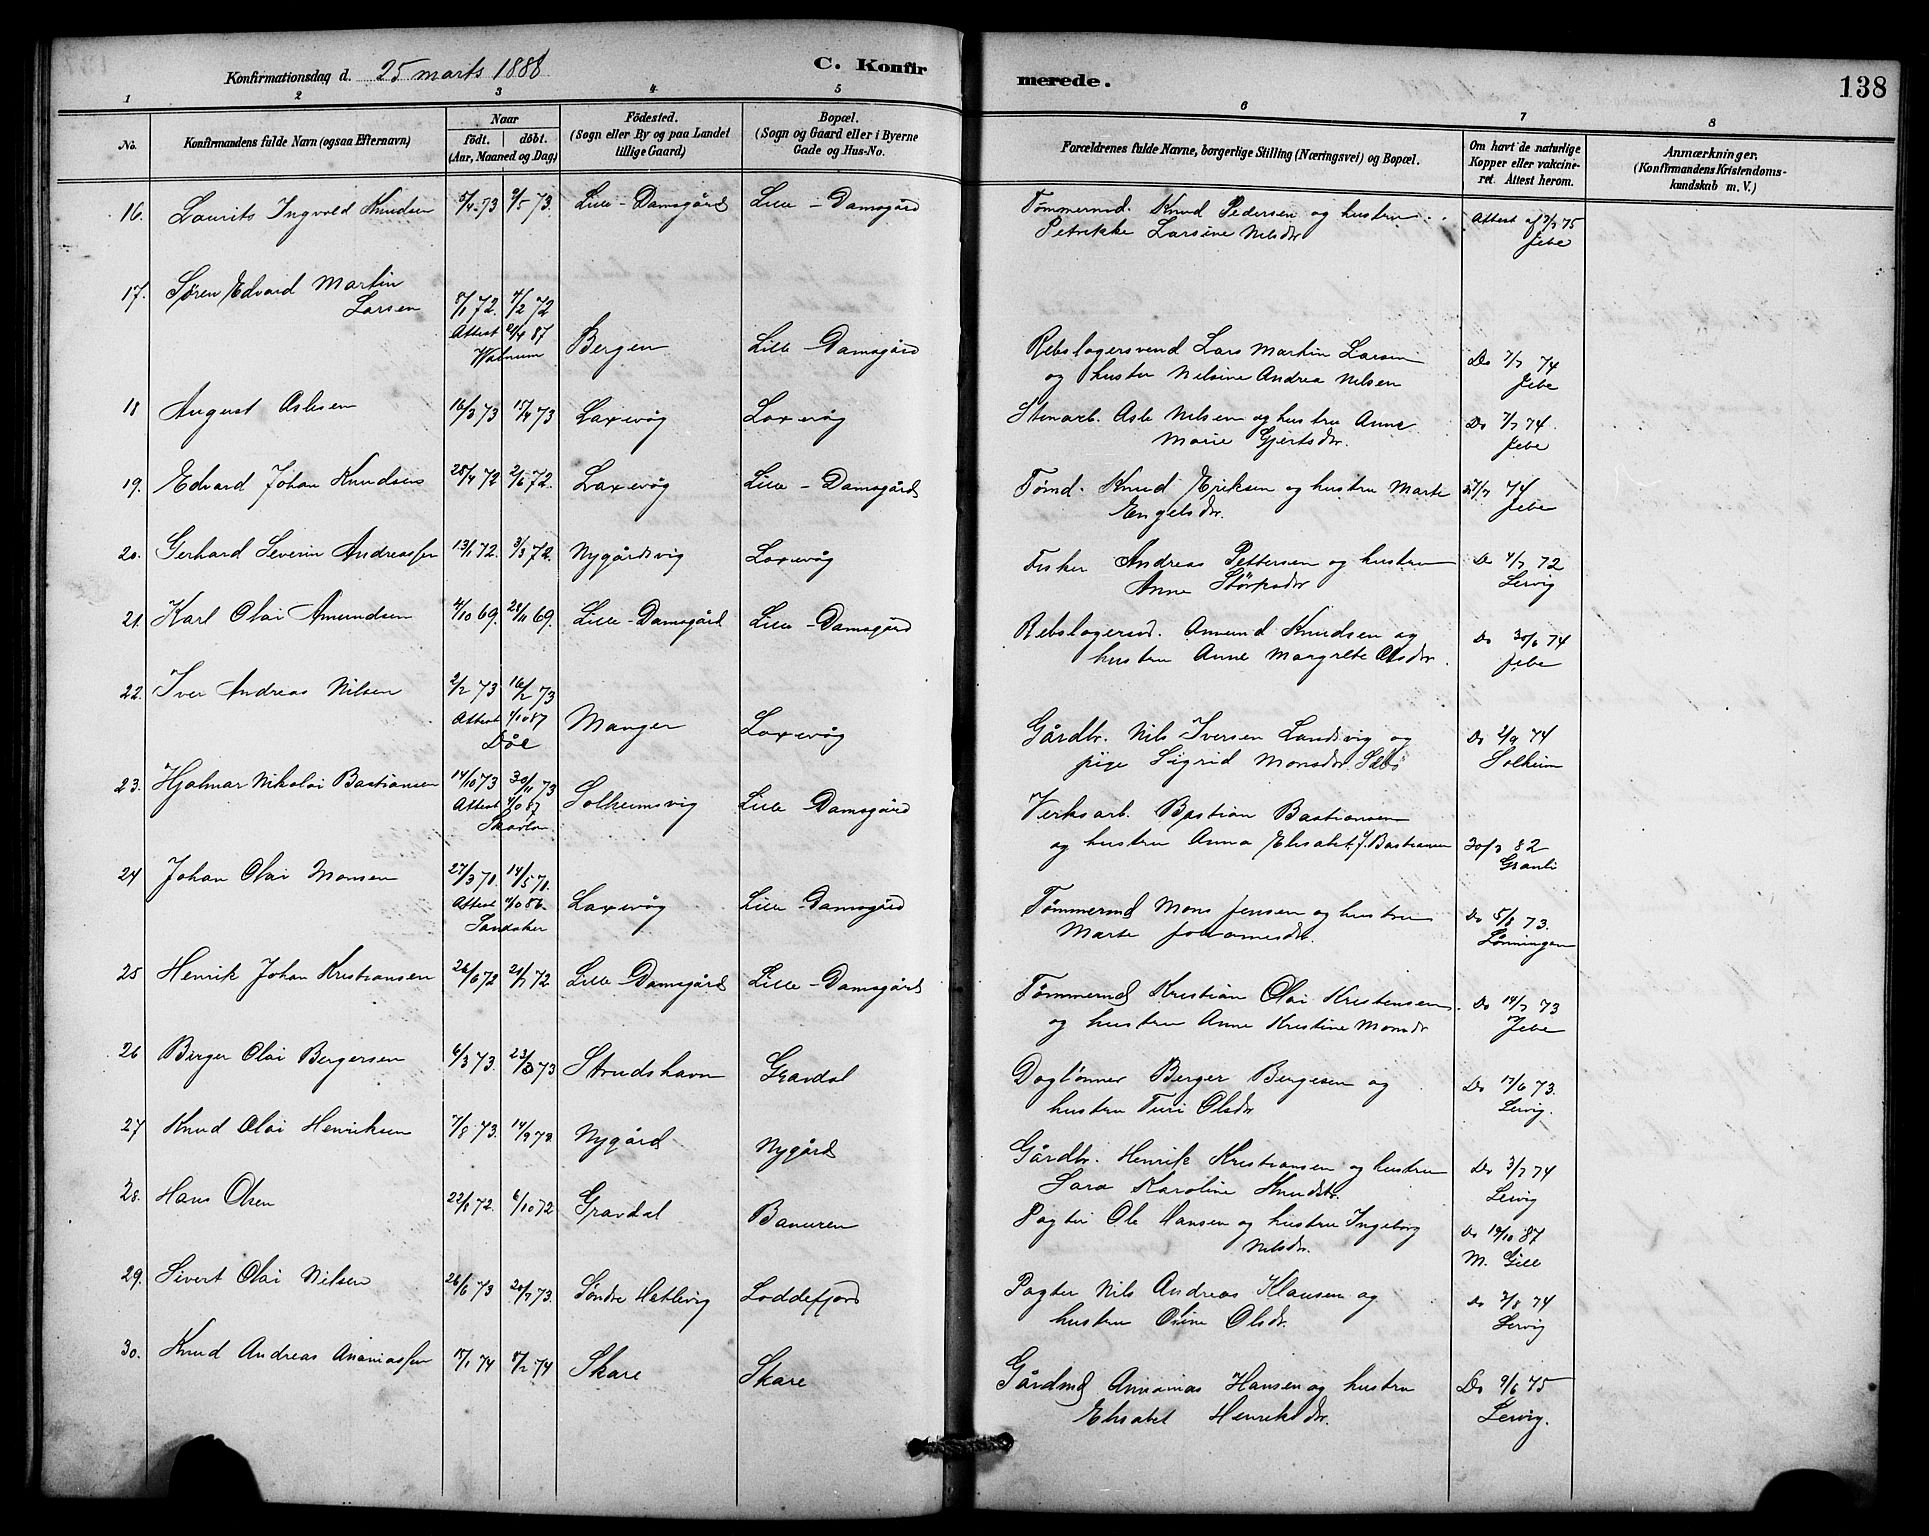 Konfirmationsdag d. 25 marts 1888
C. Konfirmerede.
138
1 2 3 4 5 6 7 8
No. Konfirmandens fulde Navn (ogsaa Efternavn) Naar födt. döbt. (Aar, Maaned og Dag) Födested. (Sogn eller By og paa Landet tillige Gaard) Bopæl. (Sogn og Gaard eller i Byerne Gade og Hus-No. Forældrenes fulde Navne, borgerlige Stilling (Næringsvei) og Bopæl. Om havt de naturlige Kopper eller vakcineret. Attest herom. Anmærkninger. (Konfirmandens Kristendomskundskab m. V.)
16. Laurits Ingvold Knudsen 5/4 73 9/5 73. Lille-Damsgård Lille-Damsgård Tømmermd. Knud Pedersen og hustru Attest af 7/7 75
Petrikke Larsine Nilsdr Jebe
17. Søren Edvard Martin
Larsen 8/1 72. 4/2 72
Attest 21/4 87
Walnum Bergen Lille-Damsgård Rebslagersvend Lars Martin Larsen Do 7/7 74
og hustru Nilsine Andrea Nilsen Jebe
18 August Aslesen 16/3 73 15/4 73 Laxevåg Laxevåg Stenarb. Asle Nilsen og hustru Anne Do 7/7 74.
Marie Gjertsdr. Jebe
19. Edvard Johan Knudsen 28/4 72 2/6 72. Laxevåg Lille-Damsgård Tømd. Knud Eriksen og hustru Marte 27/7 74
Engelsdr. Jebe
20. Gerhard Severin Andreassen 13/1 72. 3/3 72. Nygårdsvig Laxevåg Fisker Andreas Pettersen og hustru Do 4/7 72
Anne Lervig
21. Karl Olai Amundsen 4/10 69. 28/11 69. Lille-Damsgård Lille-Damsgård Rebslagersd. Amund Knudsen og Do 30/6 74
hustru Anne Margrete Olsdr. Jebe
22. Iver Andreas Nilsen 2/2 73 16/2 73
Attest 4/10 87
Døe Manger Laxevåg Gårdbr. Nils Iversen Landsvig og Do 2/9 74
pige Sigrid Monsdr Sæbø Solheim
23. Hjalmar Nikolai Bastiansen 14/10 73 30/11 73
Attest 87
Solheimsvig Lille Damsgård Verksarb. Bastian Bastiansen
og hustru Anna Elisabet J. Bastiansen 30/3 82
Granli
24 Johan Olai Monsen 27/3 71. 14/5 71.
Attest 4/10 86.
Sandaker Laxevåg Lille-Damsgård Tømmermd Mons Jensen og hustru Do 5/8 73.
Marte Johannesdr. Lønningen
25 Henrik Johan Kristiansen 26/6 72 21/7 72 Lille-Damsgård Lille-Damsgård Tømmermd Kristian Olai Kristensen Do 14/7 73
og hustru Anne Kristine Monsdr Jebe
26 Birger Olai Bergersen 6/3 73. 23/3 73 Strudshavn Gravdal Dagtønner Berger Bergesen og Do 17/6 73.
hustru Turi Olsdr Lervig.
27 Knud Olai Henriksen 7/8 73. 14/9 73. Nygård Nygård Gårdbr. Henrik Kristiansen og hustru Do 3/7 74
Sara Karoline Knudsdr. Lervig
28. Hans Olsen 22/8 72. 6/10 72 Gravdal Banuren Pagter Ole Hansen og hustru Ingeborg Do 19/10 87
Nilsdr. M. Gill
29. Sivert Olai Nilsen 26/6 73 20/7 73. Søndre Hetlevig Loddefjord Pagter Nils Andreas Klausen og Do 3/8 74
hustru Oline Olsdr. Lervig
30. Knud Andreas Ananiassen 15/1 74 8/2 74 Skare Skare Gårdmd Annanias Hansen og hustru Do 9/6 75
Elisabet Henriksdr. Lervig.